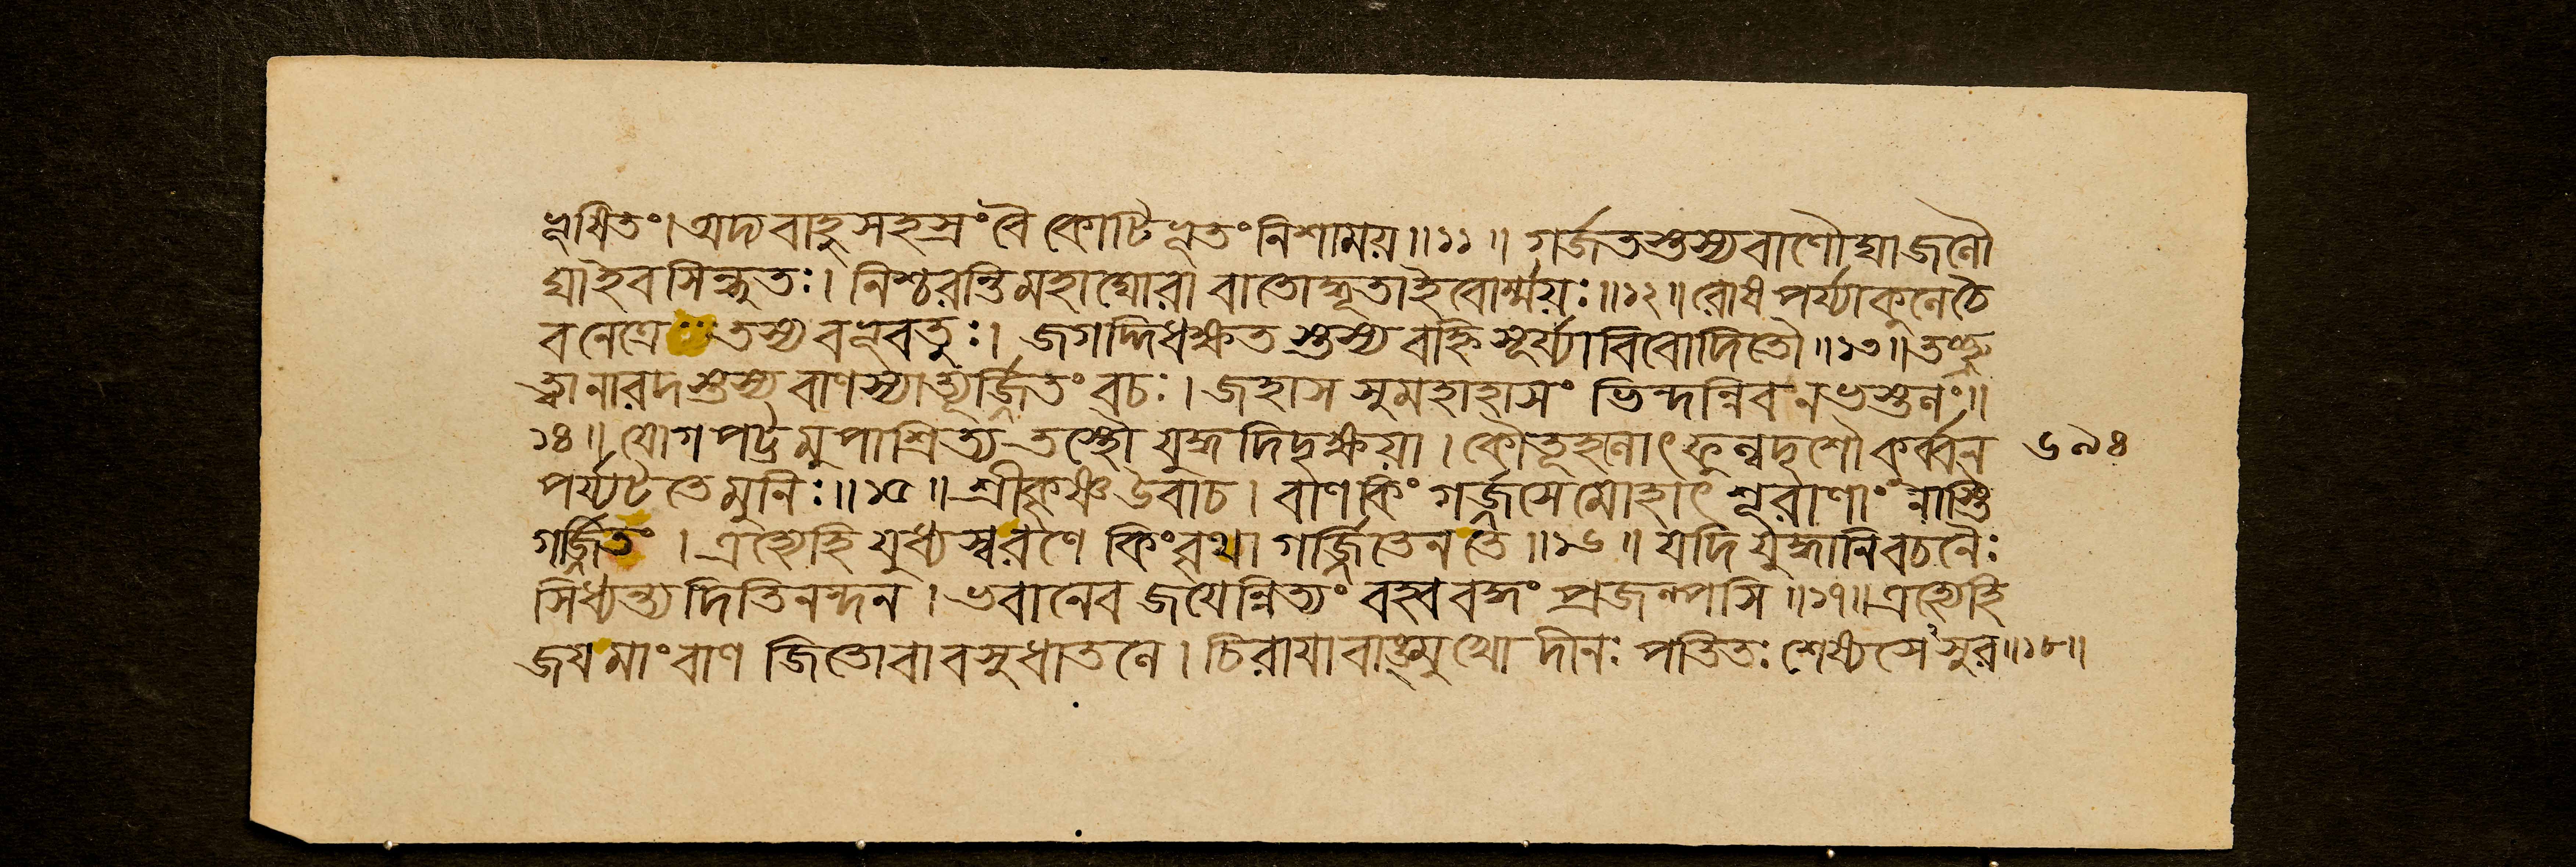 ভূষিতং। অদ্য বাহুসহস্রং বৈ কোটিভূতং নিশাময়॥১১॥ গর্জতস্তুস্য বাণৌঘা জলৌ
ঘা ইব সিন্ধুতঃ। নিশ্চরন্তি মহাঘোরা বাতোদ্ধূতা ইবোর্ম্ময়ঃ॥১২॥ রোষপর্য্যাকুলে চৈ
ব নেত্রে তস্য বভূবতুঃ। জগদ্দিধক্ষতস্তস্য বহ্নিসূর্য্যাবিবোদিতৌ॥১৩॥ তচ্ছ্রু
ত্বা নারদস্তস্য বাণস্যাত্যূর্জ্জিতং বচঃ। জহাস সুমহাহাসং ভিন্দন্নিব নভস্তলং॥
১৪॥ যোগপট্টমুপাশ্রিত্য তস্থৌ যুদ্ধদিদৃক্ষয়া। কৌতূহলোৎফুল্লদৃশৌ কুর্ব্বন ৬৯৪
পর্য্যটতে মুনিঃ॥১৫॥ শ্রীকৃষ্ণ উবাচ। বাণ কিং গর্জ্জসে মোহাৎ শূরাণাং নাস্তি
গর্জ্জিতং। এহ্যেহি যুধ্যস্ব রণে কিং বৃথা গর্জ্জিতেন তে॥১৬॥ যদি যুদ্ধানি বচনৈঃ
সিধ্যন্ত্যদিতিনন্দন। ভবানেব জয়েন্নিত্যং বহ্ববদ্ধং প্রজল্পসি॥১৭॥ এহ্যেহি
জয় মাং বাণ জিতো বা বসুধাতলে। চিরায়াবাঙ্মুখো দীনঃ পতিতঃ শেষ্যসেঽসুর॥১৮॥